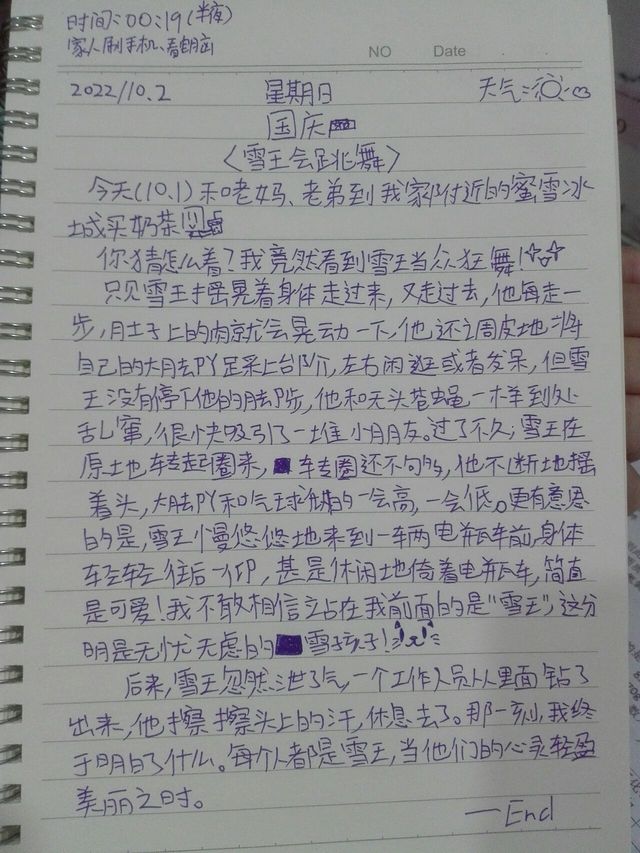 时间:00:19(半夜)
家人刷手机、看部齿
NO Date
2022/10.2 星期日 天气:
国庆
〈雪王会跳舞〉
今天(10.1)和老妈、老弟到我家附近的蜜雪冰
城买奶茶
你猜怎么着?我竟然看到雪王当众狂舞!
只见雪王摇晃着身体走过来,又走过去,他每走一
步,肚子上的肉就会晃动一下,他还调皮地将
自己的大脚丫踩上台阶,左右闲逛或者发呆,但雪
王没有停下他的脚步,他和无头苍蝇一样到处
乱窜,很快吸引了一堆小朋友。过了不久,雪王在
原地转起圈来,转圈还不够,他不断地摇
着头,大脚丫和气球似的一会高,一会低。更有意思
的是,雪王慢悠悠地来到一车两电瓶车前,身体
轻轻往后一仰,甚是休闲地倚着电瓶车,简直
是可爱!我不敢相信站在我前面的是“雪王”,这分
明是无忧无虑的雪孩子!
后来,雪王忽然泄了气,一个工作人员从里面钻了
出来,他擦擦头上的汗,休息去了。那一刻,我终
于明白了什么。每个人都是雪王,当他们的心灵轻盈
美丽之时。
—End